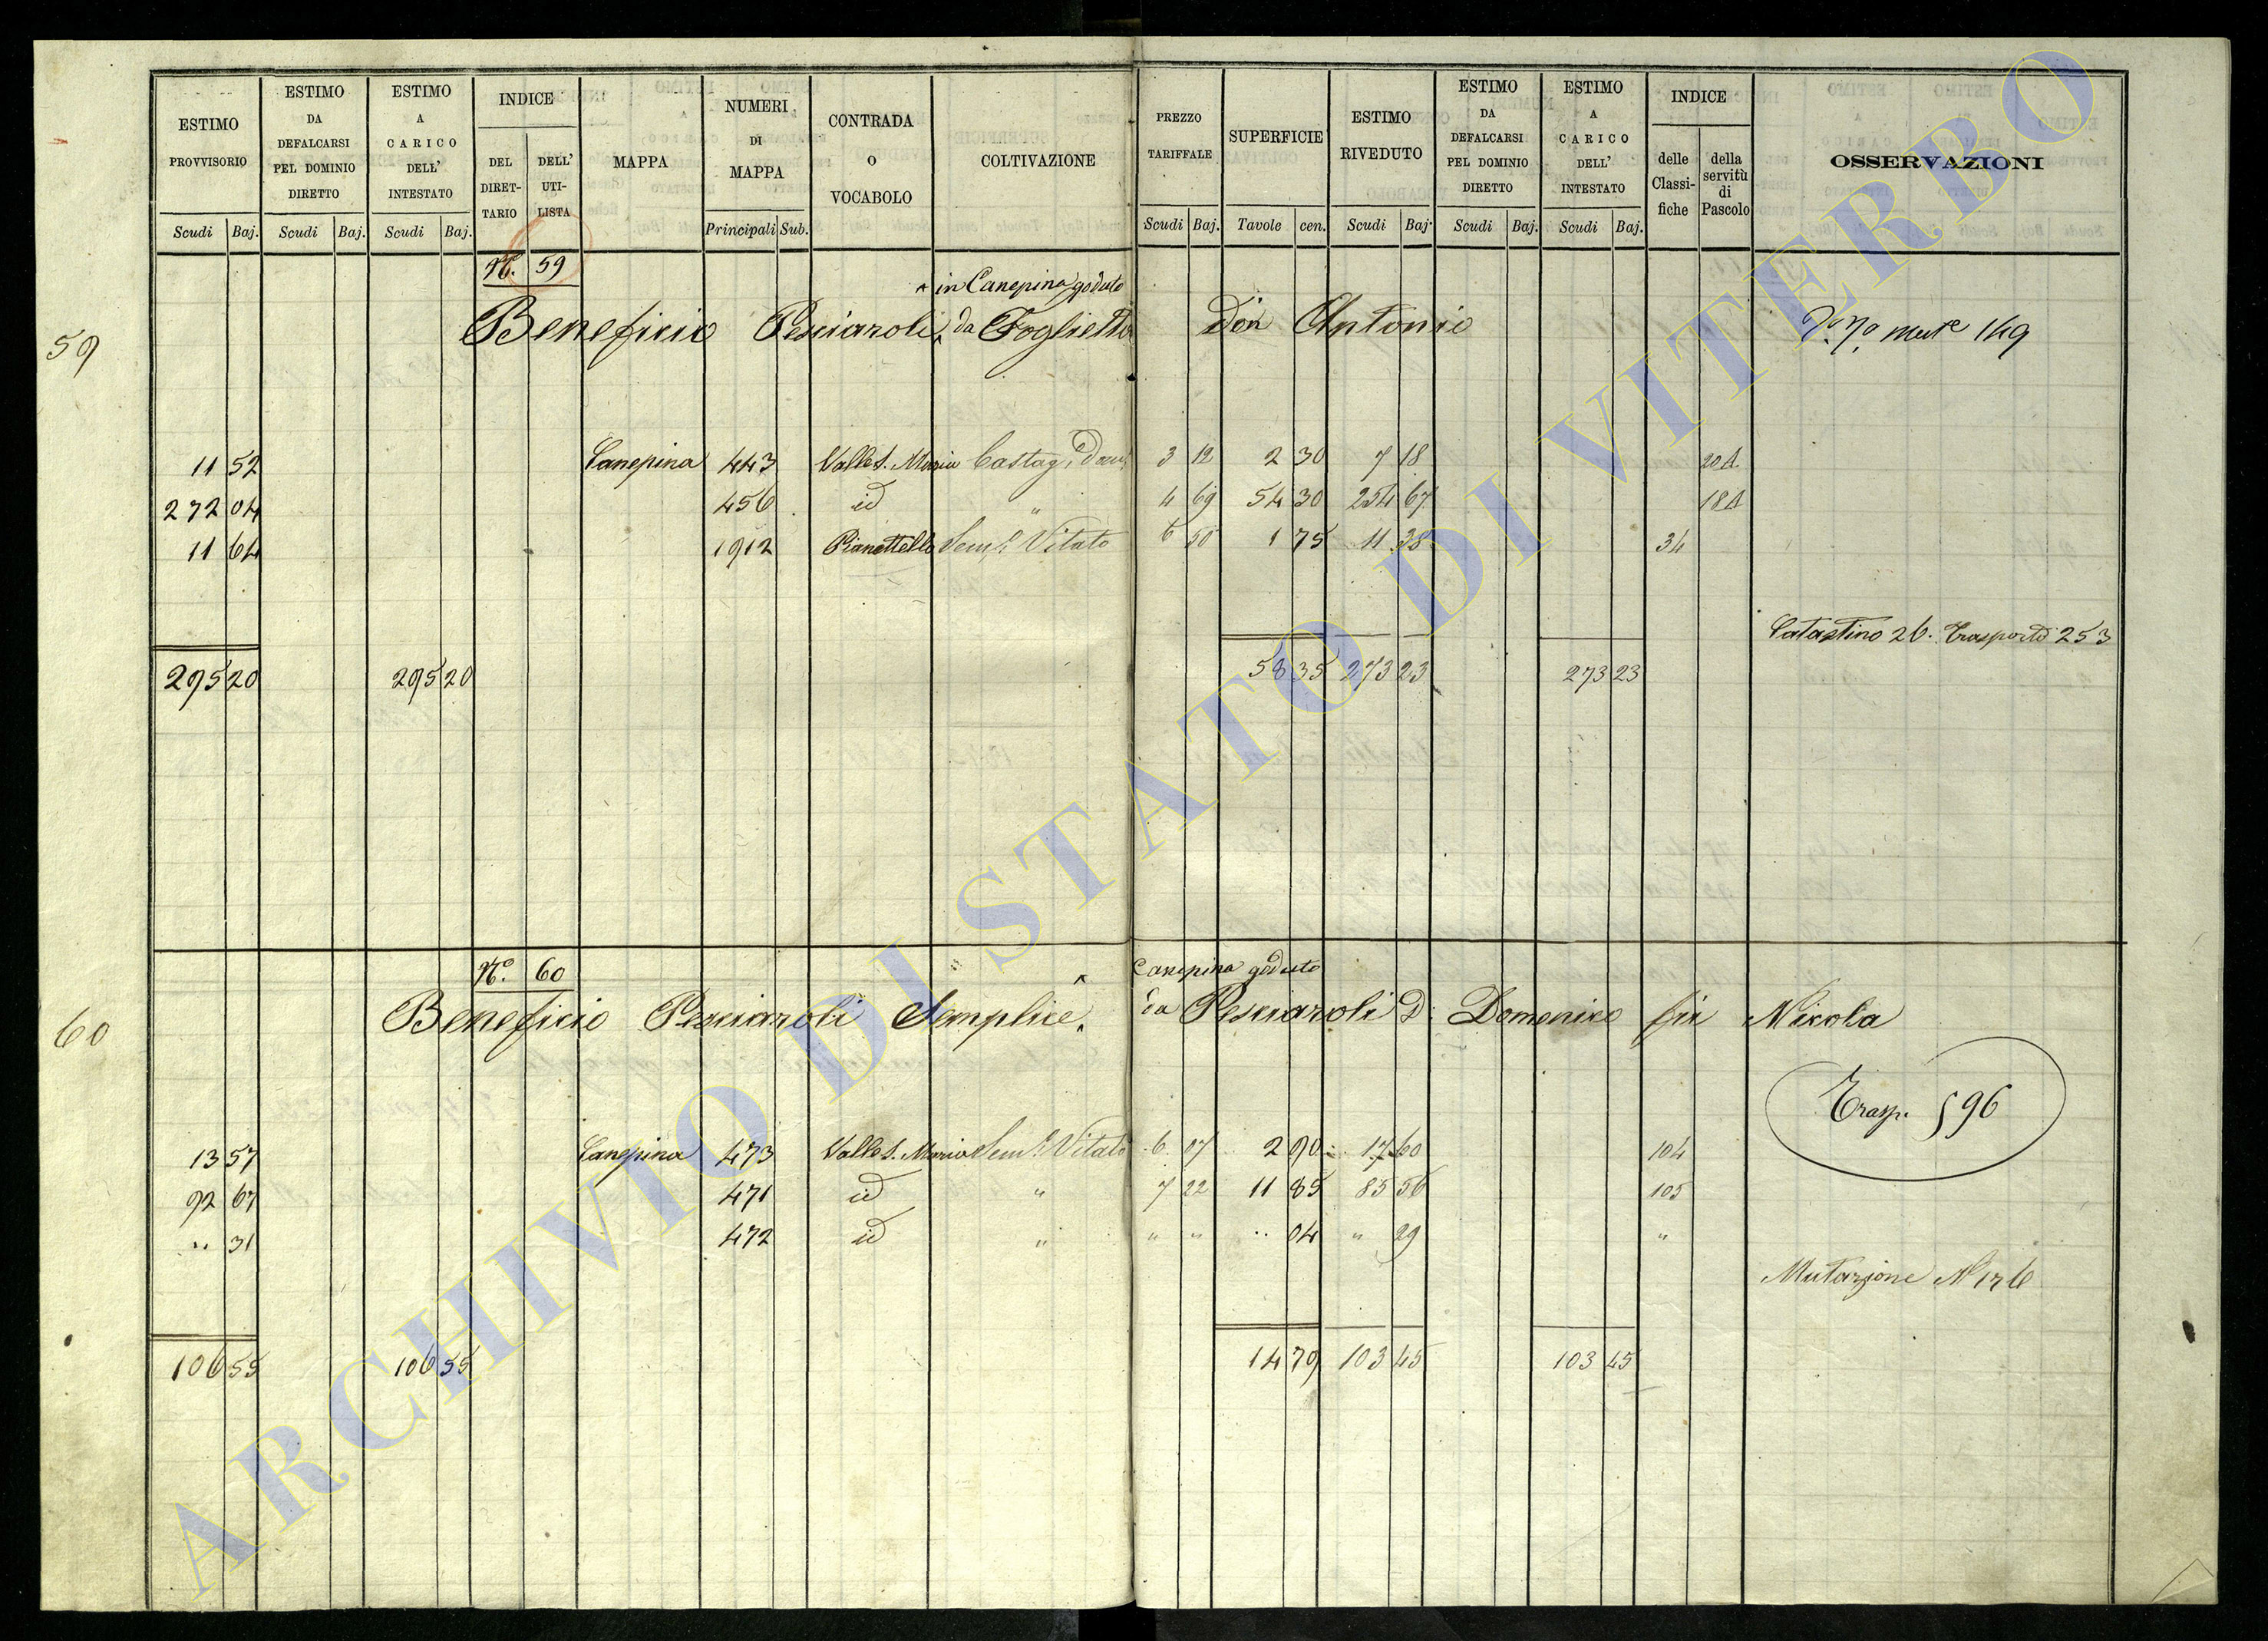 ESTIMO PROVVISORIO
ESTIMO DA DEFALCARSI PEL DOMINIO DIRETTO
ESTIMO A CARICO DELL' INTESTATO
INDICE
DEL DIRET-TARIO
DELL' UTI-LISTA
MAPPA
NUMERI DI MAPPA
CONTRADA O VOCABOLO
COLTIVAZIONE
PREZZO TARIFFALE
SUPERFICIE
ESTIMO RIVEDUTO
ESTIMO DA DEFALCARSI PEL DOMINIO DIRETTO
ESTIMO A CARICO DELL' INTESTATO
INDICE
delle Classi-fiche
della servitù di Pascolo
OSSERVAZIONI
Scudi Baj. Scudi Baj. Scudi Baj. Principali Sub. Scudi Baj. Tavole cen. Scudi Baj. Scudi Baj. Scudi Baj.
N. 59
in Canepina goduto
59 Beneficio Pesciaroli da Foglietta Don Antonio
149
11 52 Canepina 443 Valle S. Maria Castag. 3 12 2 30 7 18 20A
272 04 456 id " 4 69 54 30 254 67 18A
11 64 1912 Pianettello Sem. Vitato 6 50 1 75 11 38 34
Catastino 26. Trasporto 253
295 20 295 20 58 35 273 23 273 23
N.o 60
Canepina goduto
60 Beneficio Pesciaroli Semplice da Pesciaroli D. Domenico fu Nicola
Trasp. 596
13 57 Canepina 473 Valle S. Maria Sem. Vitato 6 07 2 90 17 60 104
92 67 471 id " 7 22 11 85 85 56 105
" 31 472 id " " " " 04 " 29 "
Mutazione N 176
106 55 106 55 14 79 103 45 103 45
ARCHIVIO DI STATO DI VITERBO